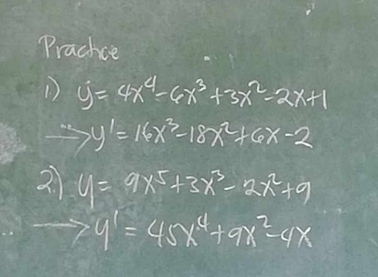 Practice
1) y = 4x⁴-6x³+3x²-2x+1
→y' = 16x³-18x²+6x-2
2.) y = 9x⁵+3x³-2x²+9
→y' = 45x⁴+9x²-4x